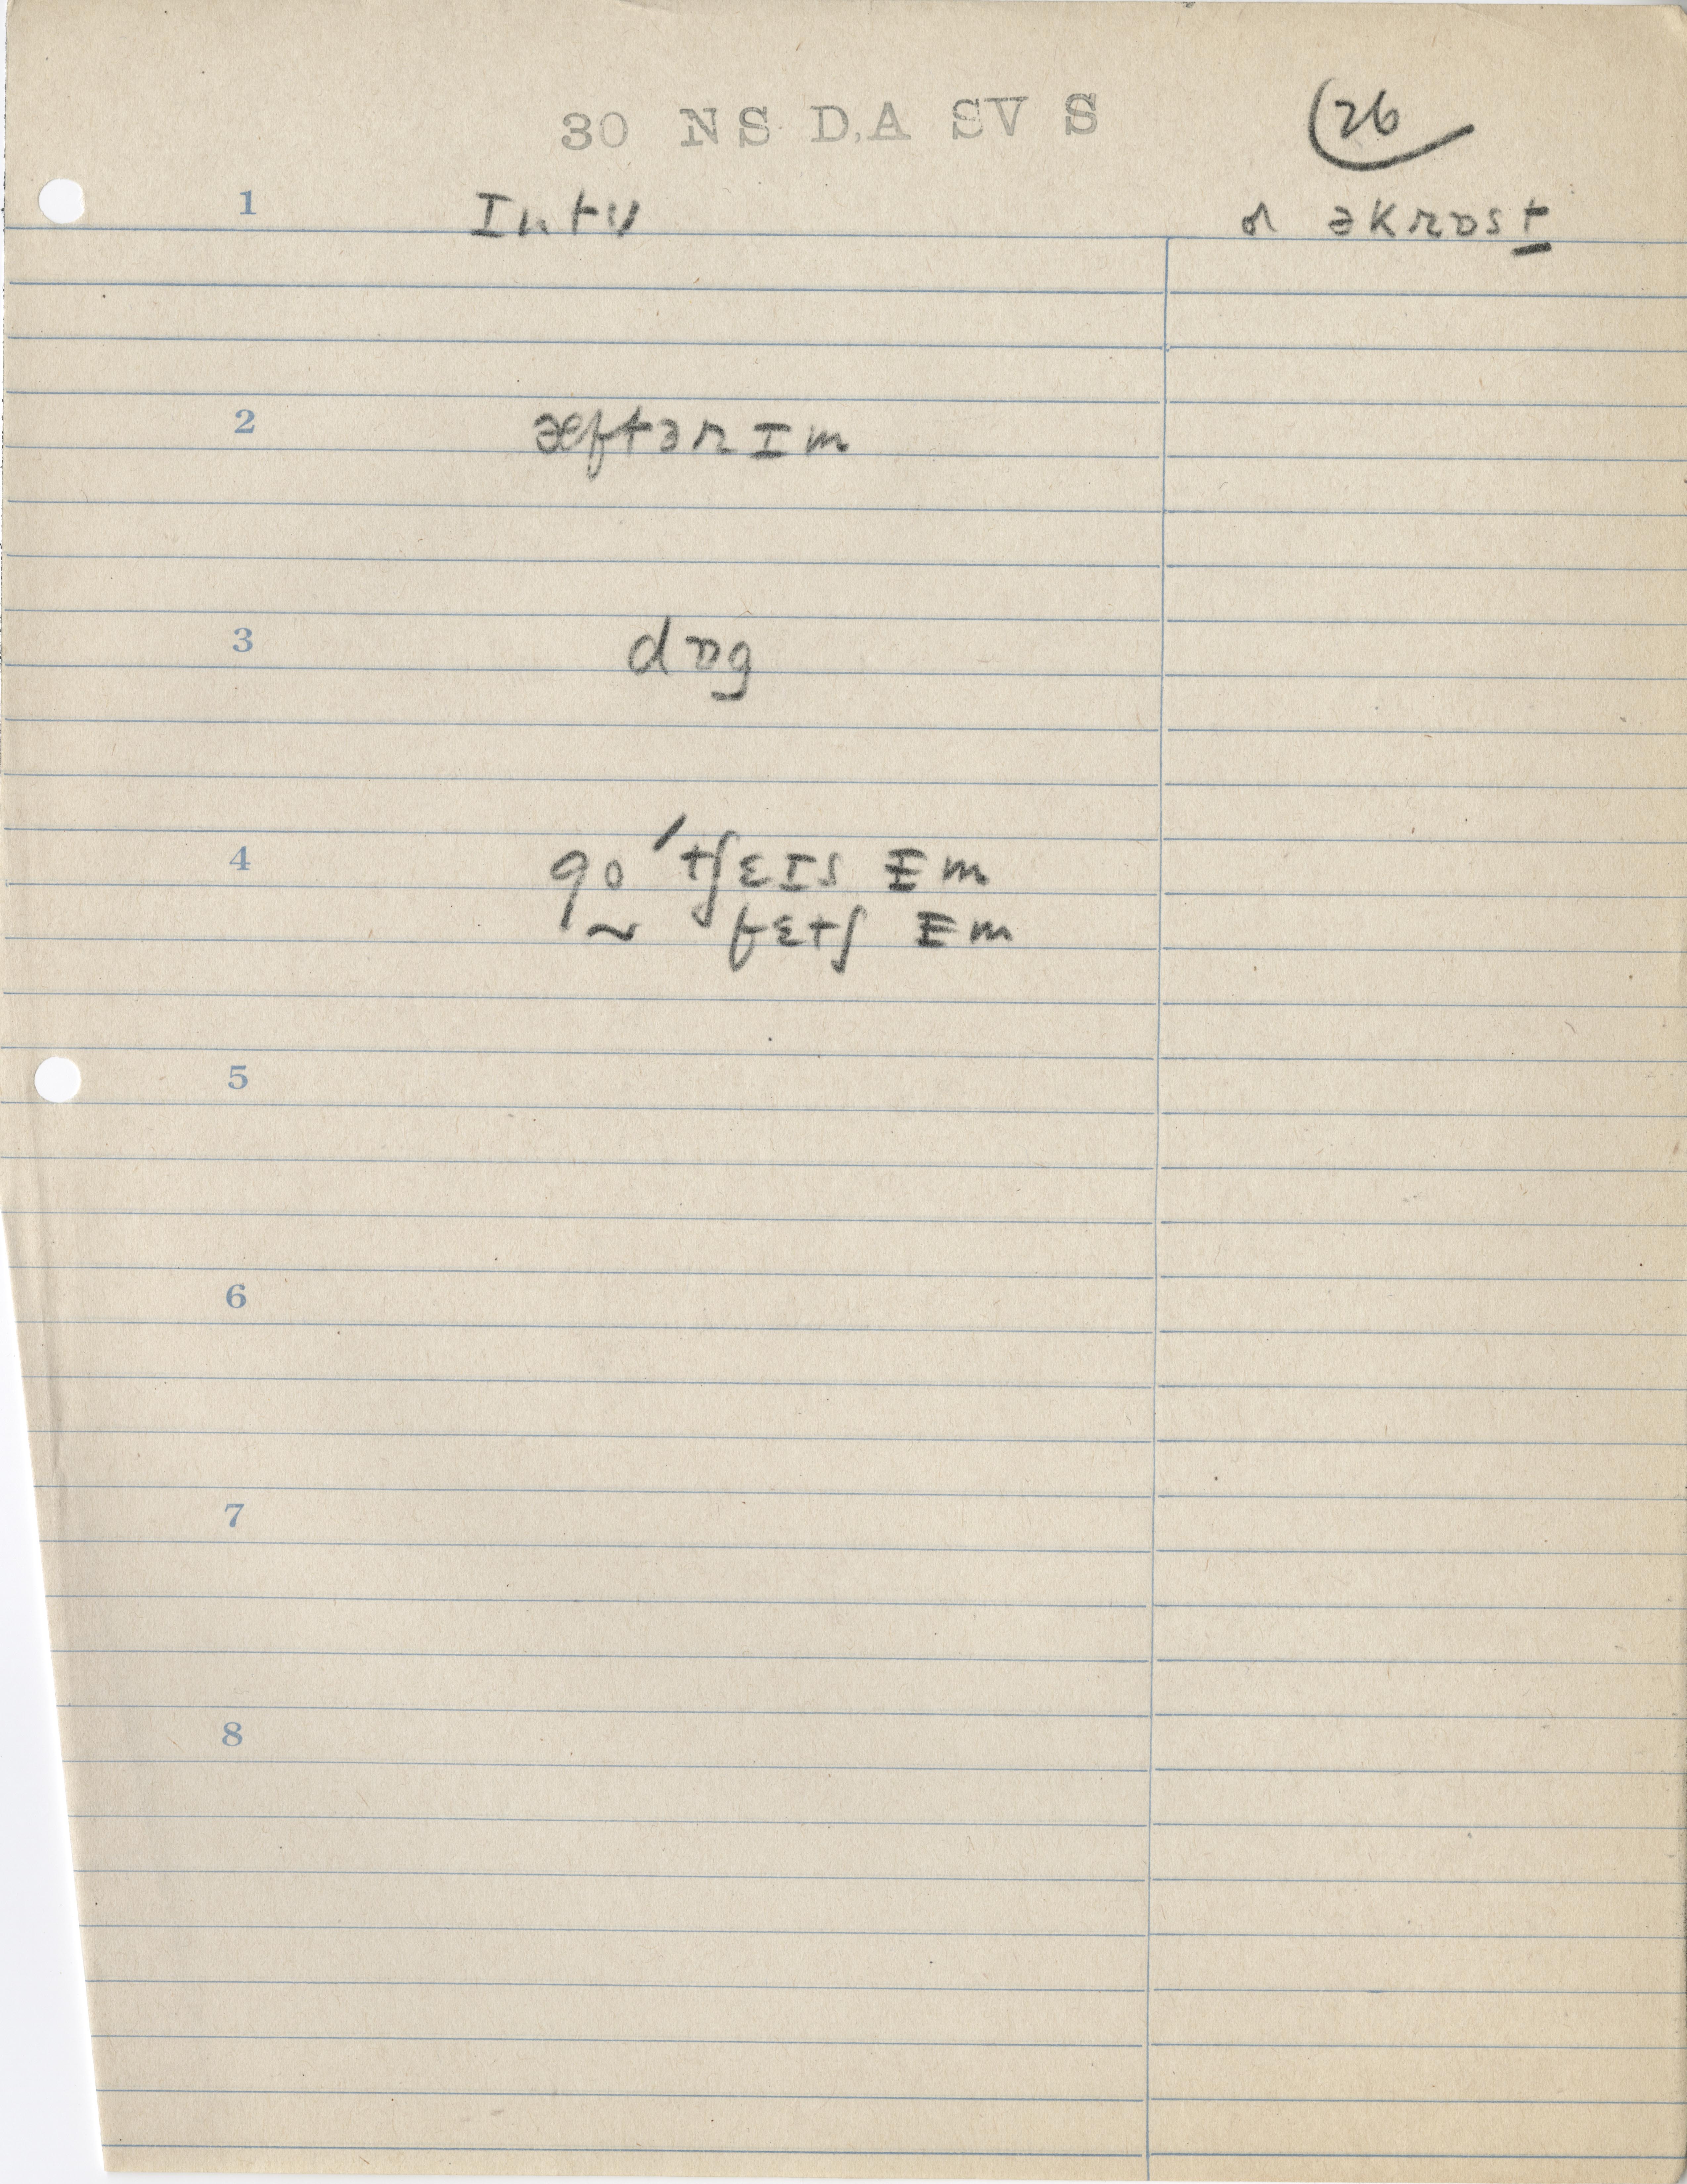 30 NS D.A SV S
26
1 Intu or əkrɒst
2 æftərɪm
3 dɒg
4 go ˈtʃɛɪs ᵻm
~ fɛtʃ ᵻm
5
6
7
8